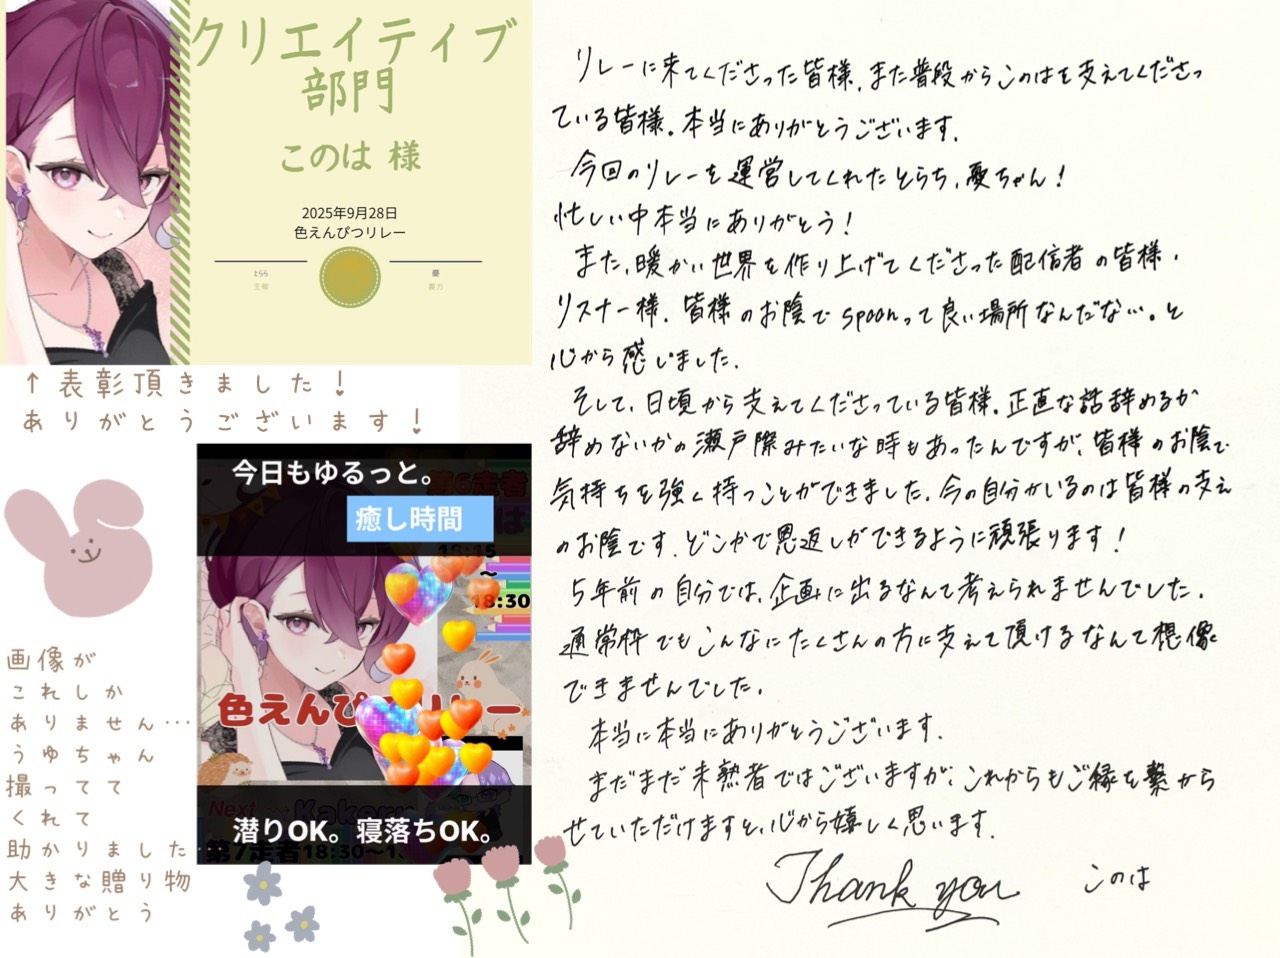 クリエイティブ
部門
このは 様
2025年9月28日
色えんぴつリレー
とらら
主催
憂
裏方
↑表彰頂きました!
ありがとうございます!
今日もゆるっと。
癒し時間
18:15
~
18:30
色えんぴつリレー
Next
Kakeru
第7走者18:30~1
潜りOK。寝落ちOK。
画像が
これしか
ありません…
うゆちゃん
撮ってて
くれて
助かりました…
大きな贈り物
ありがとう
リレーに来てくださった皆様、また普段からこのはを支えてくださっ
ている皆様。本当にありがとうございます。
今回のリレーを運営してくれたとらち、憂ちゃん!
忙しい中本当にありがとう!
また、暖かい世界を作り上げてくださった配信者の皆様、
リスナー様、皆様のお陰でspoonって良い場所なんだな…。と
心から感じました。
そして、日頃から支えてくださっている皆様。正直な話辞めるか
辞めないかの瀬戸際みたいな時もあったんですが、皆様のお陰で
気持ちを強く持つことができました。今の自分がいるのは皆様の支え
のお陰です。どこかで恩返しができるように頑張ります!
5年前の自分では、企画に出るなんて考えられませんでした。
通常枠でもこんなにたくさんの方に支えて頂けるなんて想像
できませんでした。
本当に本当にありがとうございます。
まだまだ未熟者ではございますが、これからもご縁を繋がら
せていただけますと、心から嬉しく思います。
Thank you このは